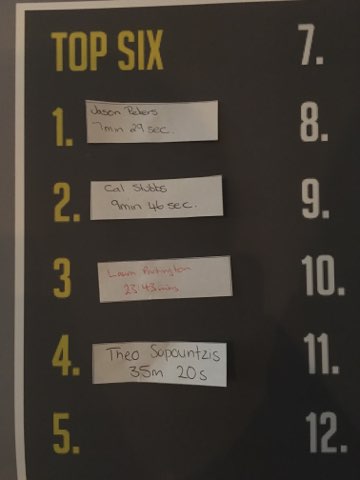 TOP SIX
1.
Jason Peters
7min 29 sec.
2.
Cal Stubbs
9min 46 sec.
3
Laura
23:43mins
4.
Theo Sapountzis
35m 20s
5.
7.
8.
9.
10.
11.
12.